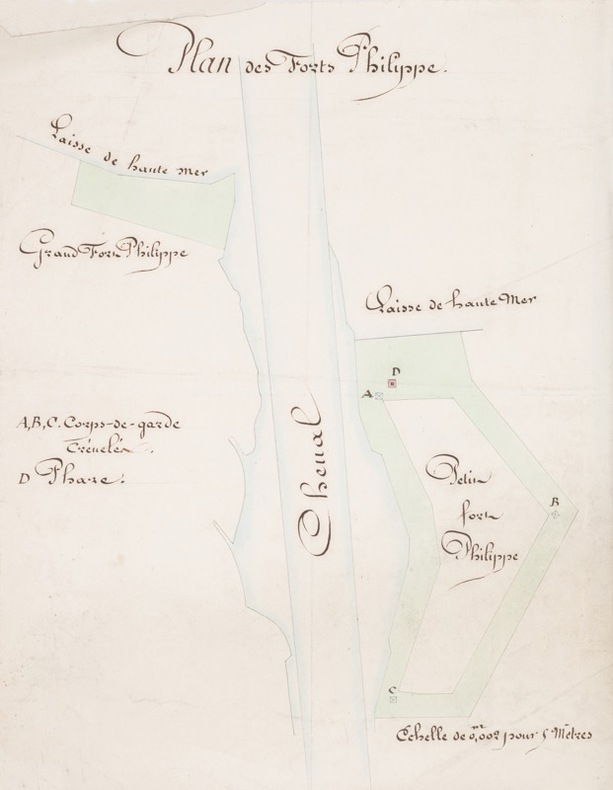 Plan des Forts Philippe.
Laisse de haute mer
Grand Fort Philippe
Laisse de haute Mer
D
A
A, B, C. Corps-de-garde
Crénelés.
D Phare.
Chenal
Petit
fort
Philippe
B
C
Echelle de 0,002 pour 5 Mètres